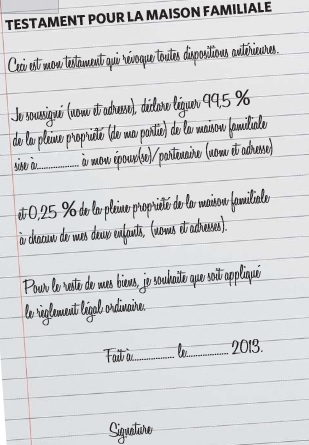 TESTAMENT POUR LA MAISON FAMILIALE
Ceci est mon testament qui révoque toutes dispositions antérieures.
Je soussigné (nom et adresse), déclare léguer 99,5 %
de la pleine propriété (de ma partie) de la maison familiale
sise à.................. à mon époux(se)/partenaire (nom et adresse)
et 0,25 % de la pleine propriété de la maison familiale
à chacun de mes deux enfants, (noms et adresses).
Pour le reste de mes biens, je souhaite que soit appliqué
le règlement légal ordinaire.
Fait à.................. le.................. 2013.
Signature